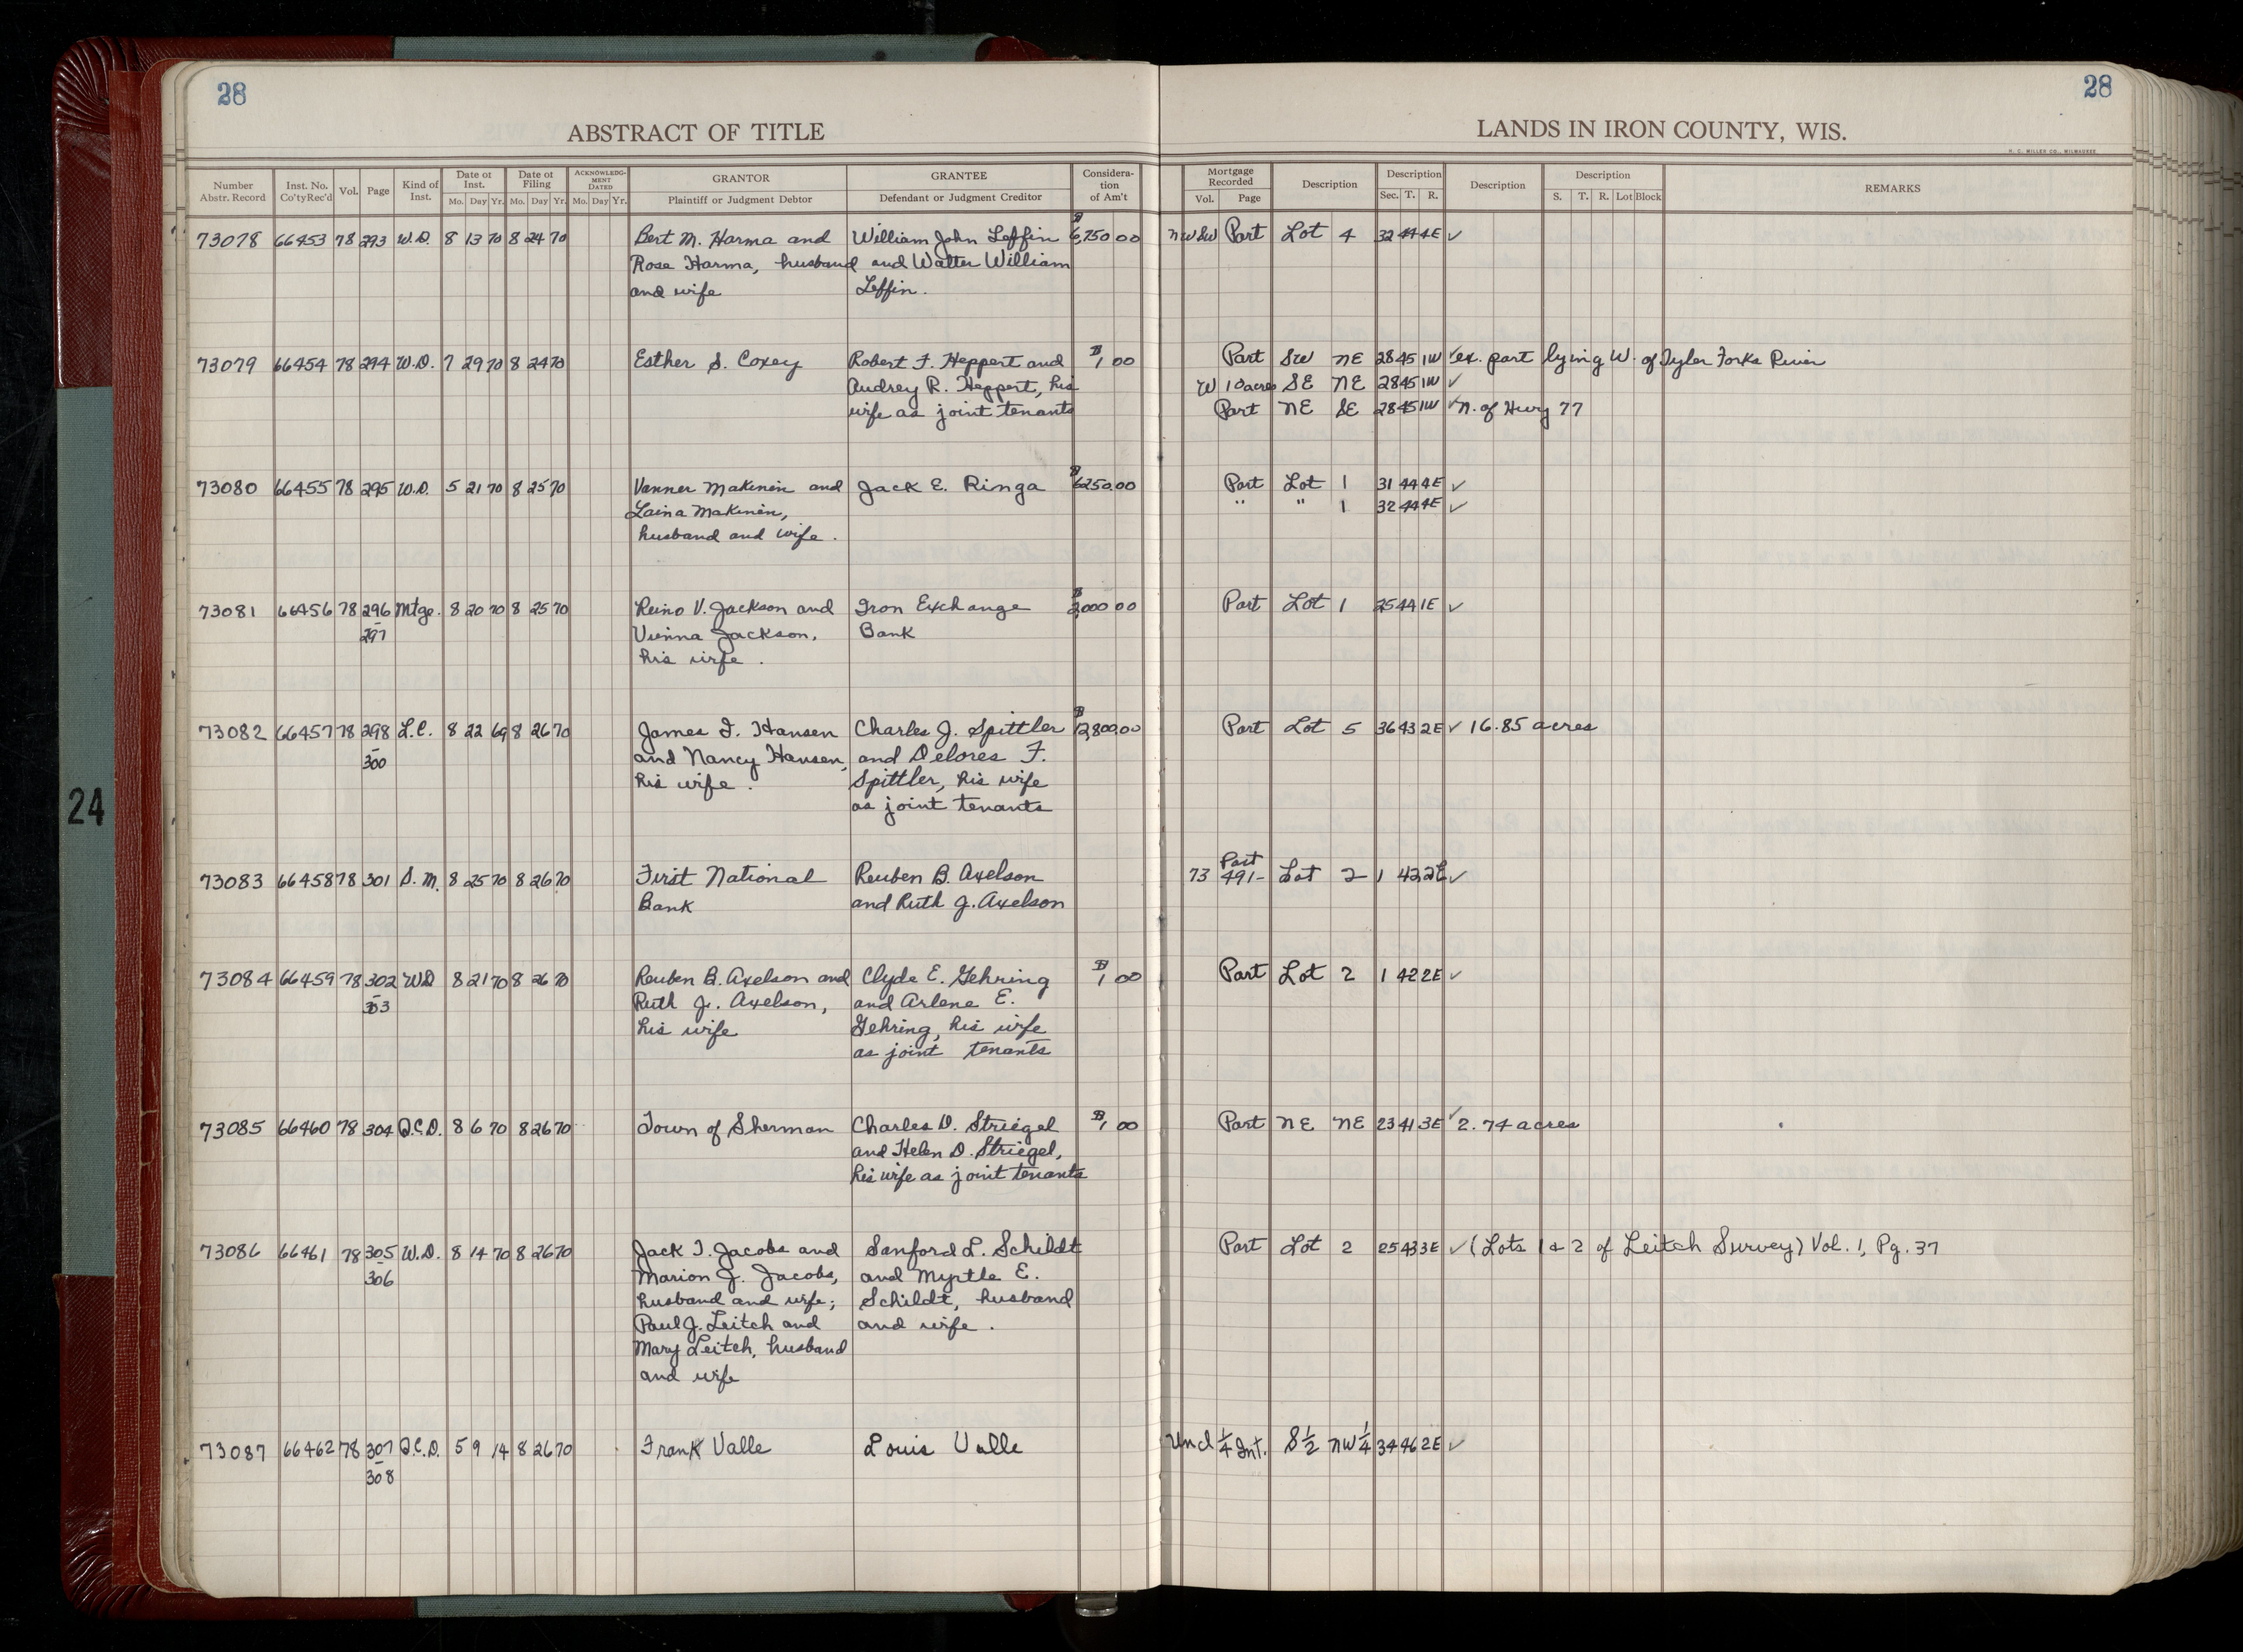 28
28
ABSTRACT OF TITLE
LANDS IN IRON COUNTY, WIS.
H. C. MILLER CO., MILWAUKEE
Number Abstr. Record Inst. No. Co'ty Rec'd Vol. Page Kind of Inst. Date of Inst. Mo. Day Yr. Date of Filing Mo. Day Yr. ACKNOWLEDGMENT DATED Mo. Day Yr. GRANTOR Plaintiff or Judgment Debtor GRANTEE Defendant or Judgment Creditor Consideration of Am't Mortgage Recorded Vol. Page Description Description Sec. T. R. Description Description S. T. R. Lot Block REMARKS
73078 66453 78 293 W.D. 8 13 70 8 24 70 Bert M. Harma and William John Leffin $6,750 00 NW SW Part Lot 4 32 44 4E ✓
Rose Harma, husband and Walter William
and wife Leffin.
73079 66454 78 294 W.D. 7 29 70 8 24 70 Esther S. Coxey Robert F. Heppert and $1 00 Part SW NE 28 45 1W ✓ ex. part lying W. of Tyler Forks River
Audrey R. Heppert, his W 10 acres SE NE 28 45 1W ✓
wife as joint tenants Part NE SE 28 45 1W ✓ N. of Hwy 77
73080 66455 78 295 W.D. 5 21 70 8 25 70 Vanner Makinen and Jack E. Ringa $6250.00 Part Lot 1 31 44 4E ✓
Laina Makinen, " " 1 32 44 4E ✓
husband and wife.
73081 66456 78 296 Mtge. 8 20 70 8 25 70 Reino V. Jackson and Iron Exchange $2,000 00 Part Lot 1 25 44 1E ✓
- 297 Vienna Jackson, Bank
his wife.
73082 66457 78 298 L.C. 8 22 69 8 26 70 James F. Hansen Charles J. Spittler $12,800.00 Part Lot 5 36 43 2E ✓ 16.85 acres
- 300 and Nancy Hansen, and Delores F.
his wife. Spittler, his wife
as joint tenants
73083 66458 78 301 S.M. 8 25 70 8 26 70 First National Reuben B. Axelson 73 Part 491- Lot 2 1 42 2E ✓
Bank and Ruth J. Axelson
73084 66459 78 302 WD 8 21 70 8 26 70 Reuben B. Axelson and Clyde E. Gehring $1 00 Part Lot 2 1 42 2E ✓
- 303 Ruth J. Axelson, and Arlene E.
his wife Gehring, his wife
as joint tenants
73085 66460 78 304 Q.C.D. 8 6 70 8 26 70 Town of Sherman Charles D. Striegel $1 00 Part NE NE 23 41 3E ✓ 2.74 acres
and Helen D. Striegel,
his wife as joint tenants
73086 66461 78 305 W.D. 8 14 70 8 26 70 Jack T. Jacobs and Sanford L. Schildt Part Lot 2 25 43 3E ✓ (Lots 1 & 2 of Leitch Survey) Vol. 1, Pg. 37
- 306 Marion J. Jacobs, and Myrtle E.
husband and wife; Schildt, husband
Paul J. Leitch and and wife.
Mary Leitch, husband
and wife
73087 66462 78 307 Q.C.D. 5 9 14 8 26 70 Frank Valle Louis Valle Und 1/4 Int. S 1/2 NW 1/4 34 46 2E ✓
- 308
24